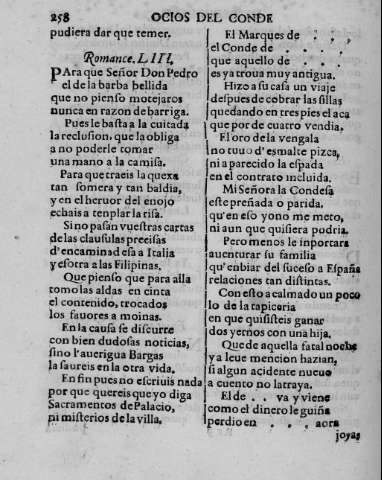 258 OCIOS DEL CONDE
pudiera dar que temer.
Romance. LIII.
PAra que Señor Don Pedro
el de la barba bellida
que no pienso motejaros
nunca en razon de barriga.
Pues le basta a la cuitada
la reclusion, que la obliga
a no poderle tomar
una mano a la camisa.
Para que traeis la quexa
tan somera y tan baldia,
y en el heruor del enojo
echais a tenplar la risa.
Si no pasan vuestras cartas
de las clausulas precisas
d'encaminad esa a Italia
y esotra a las Filipinas.
Que pienso que para alla
como las aldas en cinta
el contenido, trocados
los fauores a moinas.
En la causa se discurre
con bien dudosas noticias,
sino l'auerigua Bargas
la saureis en la otra vida.
En fin pues no escriuis nada
por que quereis que yo diga
Sacramentos de Palacio,
ni misterios de la villa.
El Marques de . . ,
el Conde de . . . .
que aquello de . . .
es ya troua muy antigua.
Hizo a su casa un viaje
despues de cobrar las sillas
quedando en tres pies el aca
que por de cuatro vendia.
El oro de la vengala
no tuuo d'esmalte pizca,
ni a parecido la espada
en el contrato incluida.
Mi Señora la Condesa
este preñada o parida.
qu'en eso yono me meto,
ni aun que quisiera podria.
Pero menos le inportara
auenturar su familia
qu'enbiar del suceso a España
relaciones tan distintas.
Con esto a calmado un poco
lo de la tapiceria
en que quisisteis ganar
dos yernos con una hija.
Que de aquella fatal noche
ya leue mencion hazian,
si algun acidente nueuo
a cuento no la traya.
El de . . va y viene
como el dinero le guiña
perdio en . . . aora
joyas